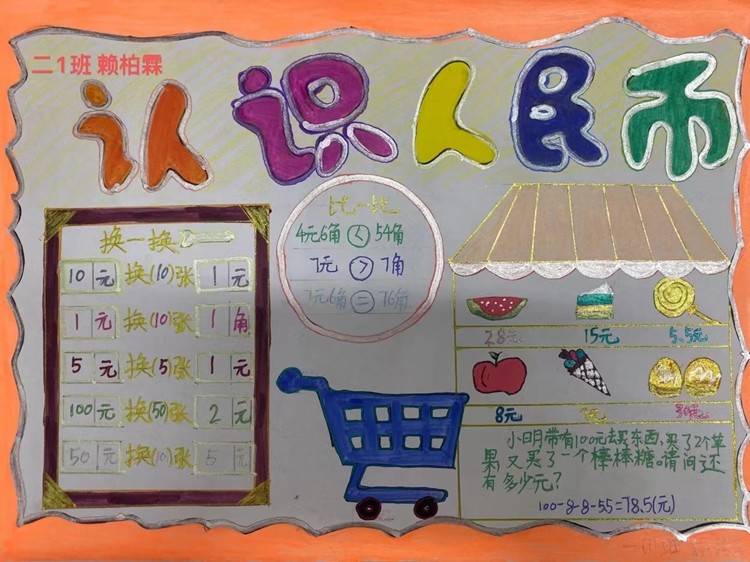 二1班 赖柏霖
认识人民币
换一换
10元换(10)张1元
1元换(10)张1角
5元换(5)张1元
100元换(50)张2元
50元换(10)张5元
比一比
4元6角<54角
7元>7角
7元6角=76角
28元 15元 5.5元
8元
小明带有100元去买东西,买了2个苹
果又买了一个棒棒糖。请问还
有多少元?
100-8-8-5.5=78.5(元)